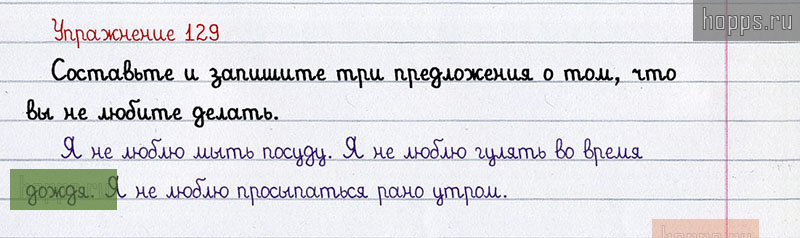 hopps.ru
Упражнение 129
Составьте и запишите три предложения о том, что
вы не любите делать.
Я не люблю мыть посуду. Я не люблю гулять во время
дождя. Я не люблю просыпаться рано утром.